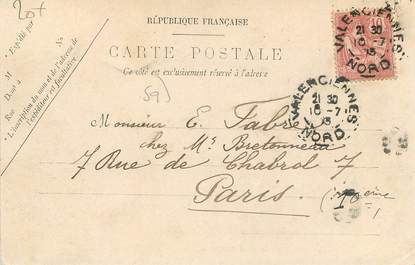 20+
RÉPUBLIQUE FRANÇAISE
CARTE POSTALE
Ce côté est exclusivement réservé à l'adresse
Expédié par
M
Rue
N°
L'inscription du nom et de l'adresse de
l'expéditeur est facultative.
10
VALENCIENNES
21 30
16-7
NORD
VALENCIENNES
21 30
16-7
NORD
59
Monsieur E. Fabre
chez Mr Bretonneau
7 Rue de Chabrol 7
Paris.